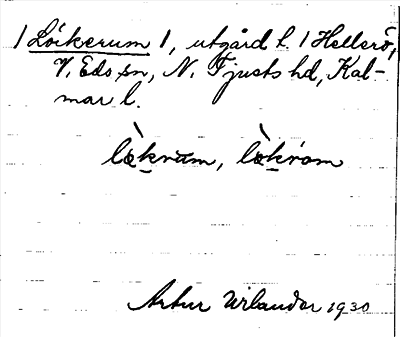 / Löckerum 1, utgård t. / Hellerö,
V. Eds sn, N. Tjusts hd, Kal-
mar l.
lὲkrum, lὲkrom
Artur Wilander 1930